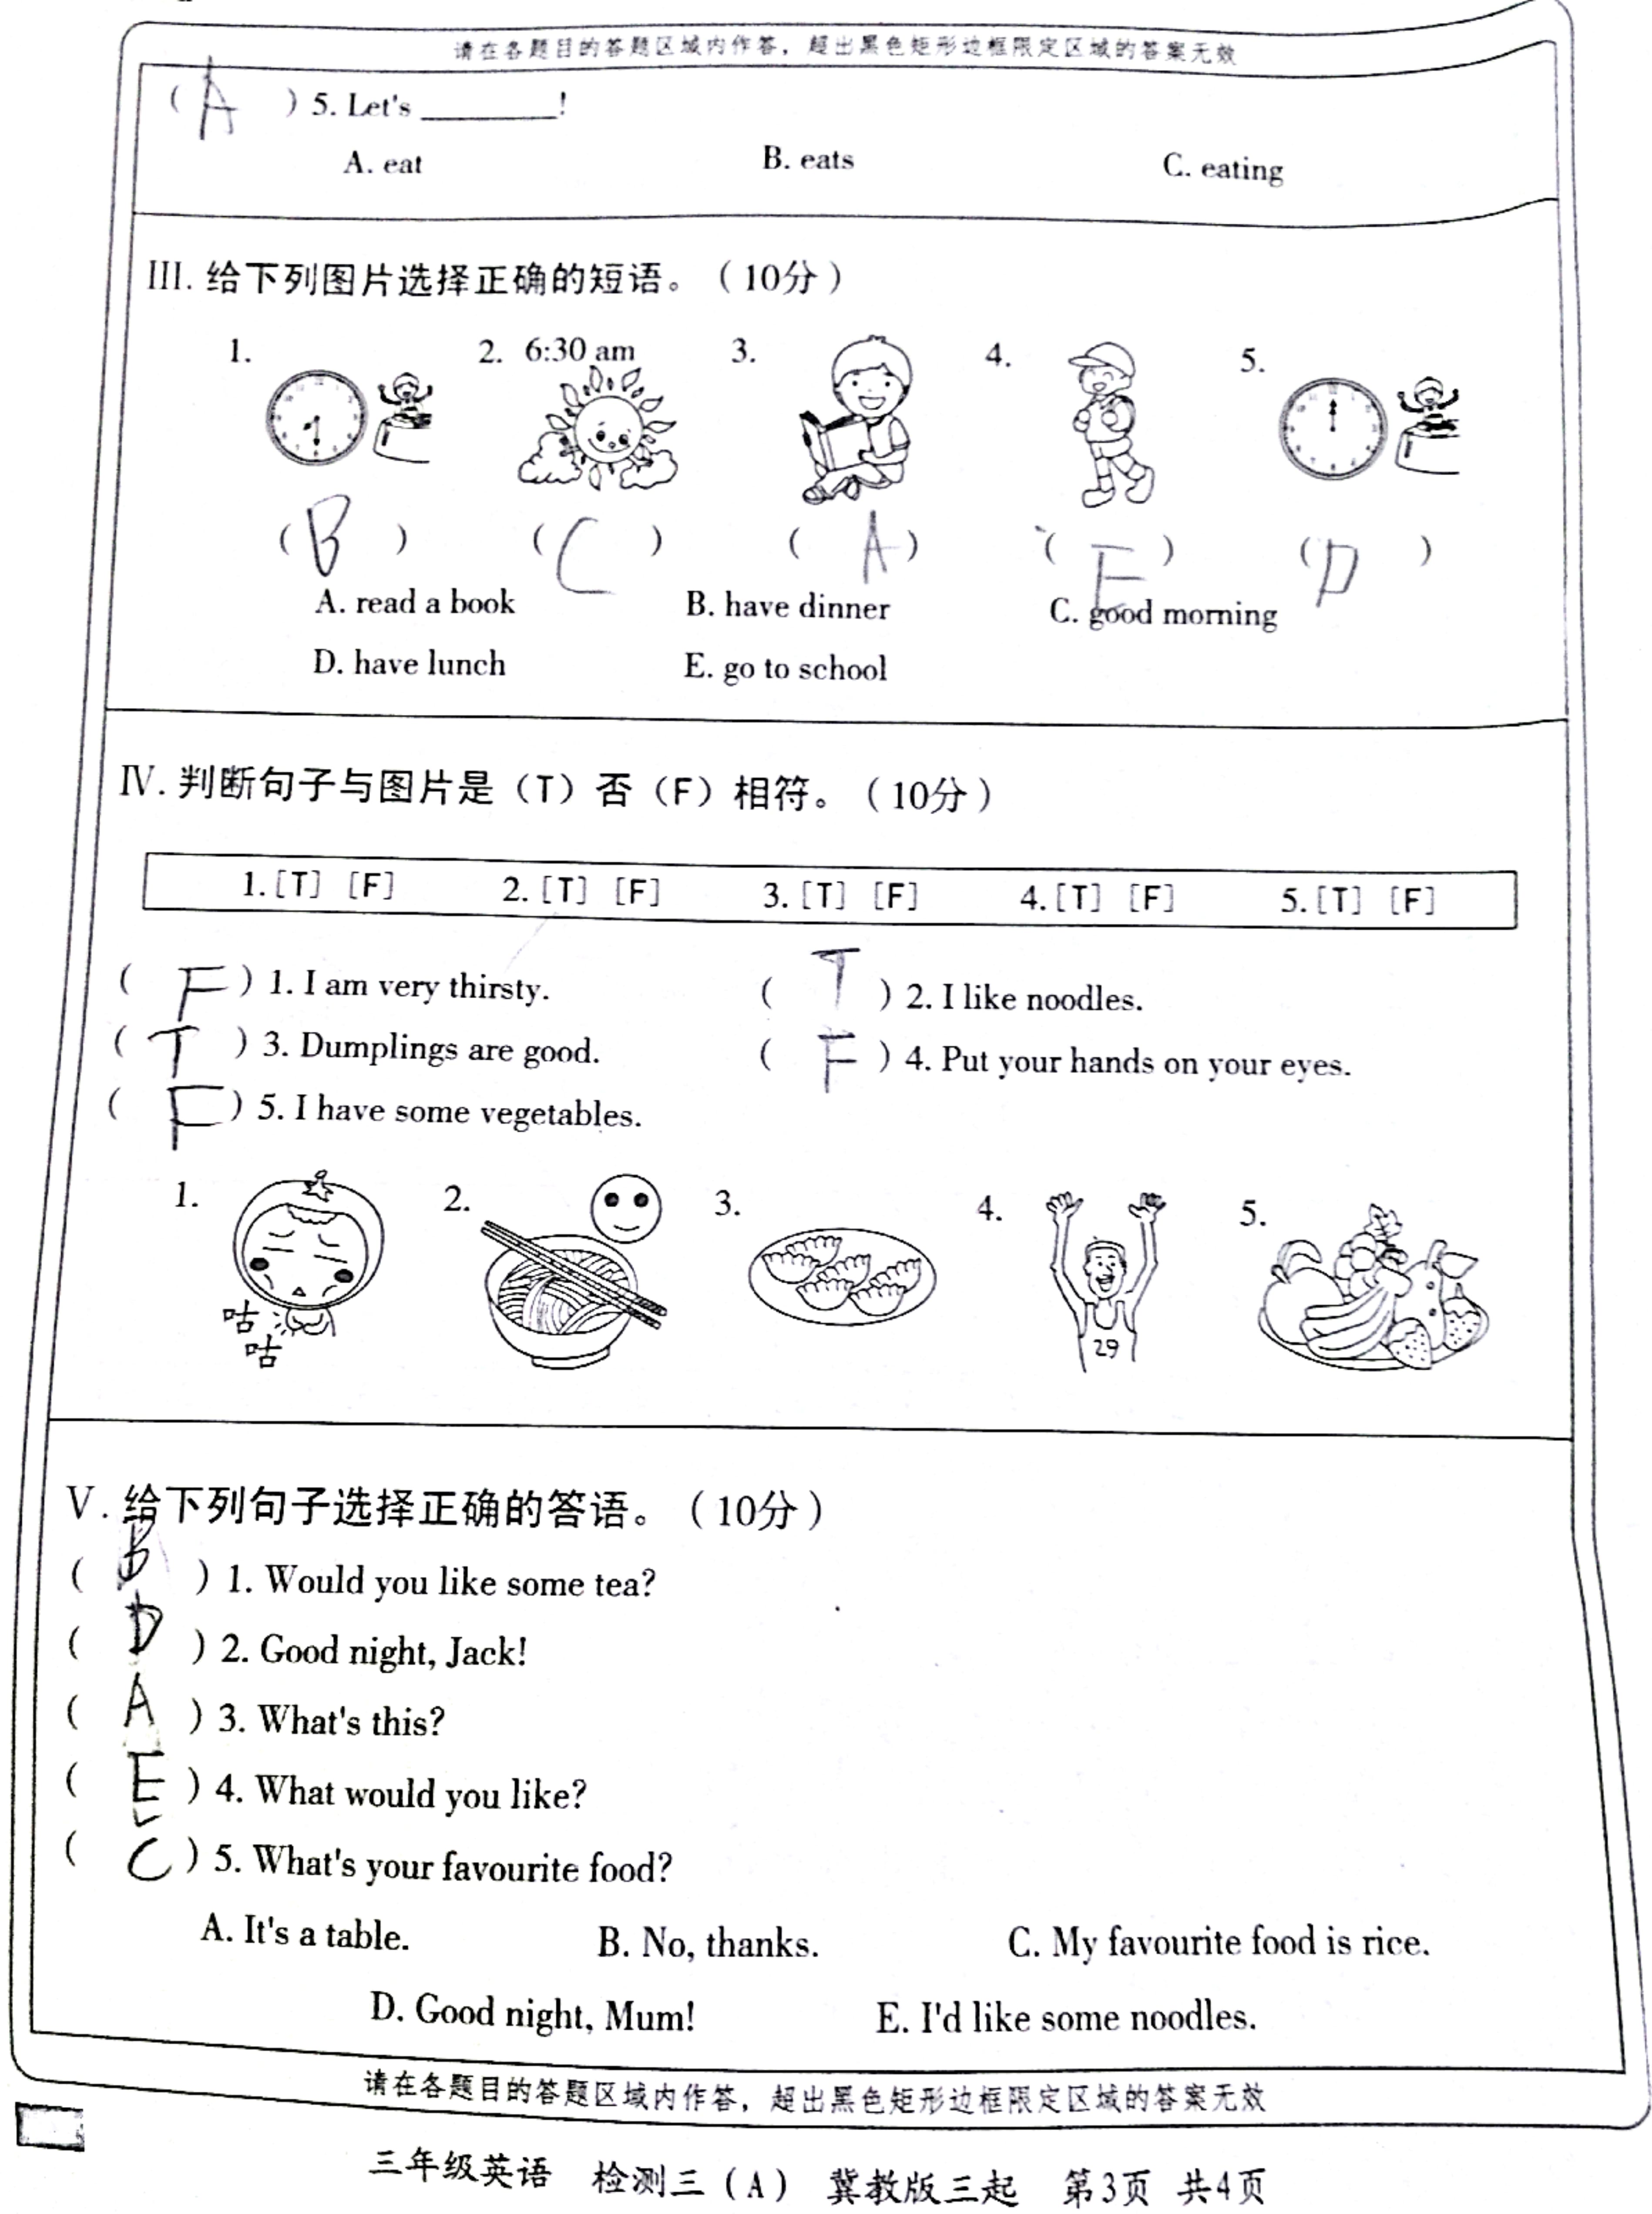 请在各题目的答题区域内作答，超出黑色矩形边框限定区域的答案无效
( A ) 5. Let's ________!
A. eat B. eats C. eating
III. 给下列图片选择正确的短语。（10分）
1. 2. 6:30 am 3. 4. 5.
( B ) ( C ) ( A ) ( E ) ( D )
A. read a book B. have dinner C. good morning
D. have lunch E. go to school
IV. 判断句子与图片是（T）否（F）相符。（10分）
1. [T] [F] 2. [T] [F] 3. [T] [F] 4. [T] [F] 5. [T] [F]
( F ) 1. I am very thirsty. ( T ) 2. I like noodles.
( T ) 3. Dumplings are good. ( F ) 4. Put your hands on your eyes.
( F ) 5. I have some vegetables.
1. 2. 3. 4. 5.
咕
咕
29
V. 给下列句子选择正确的答语。（10分）
( B ) 1. Would you like some tea?
( D ) 2. Good night, Jack!
( A ) 3. What's this?
( E ) 4. What would you like?
( C ) 5. What's your favourite food?
A. It's a table. B. No, thanks. C. My favourite food is rice.
D. Good night, Mum! E. I'd like some noodles.
请在各题目的答题区域内作答，超出黑色矩形边框限定区域的答案无效
三年级英语 检测三（A） 冀教版三起 第3页 共4页